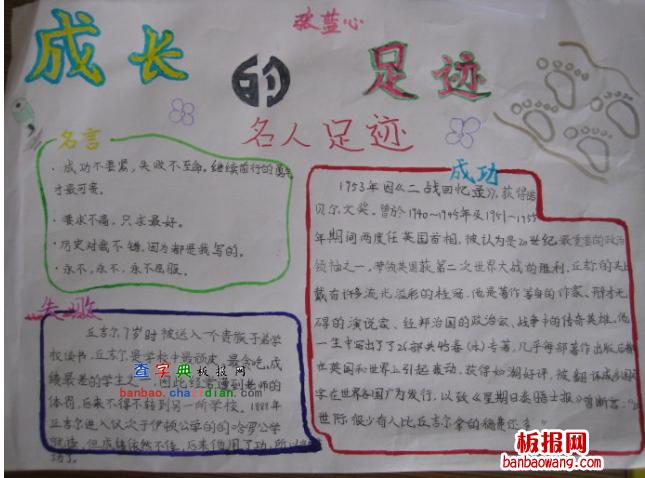 张蓝心
成长的足迹
名人足迹
名言
·成功不要紧,失败不至命。继续前行的勇气
才最可贵。
·要求不高,只求最好。
·历史对我不错,因为都是我写的。
·永不,永不,永不屈服。
成功
1953年因《二战回忆录》,获得诺
贝尔文奖。曾於1940~1945年及1951~1955
年期间两度任英国首相,被认为是20世纪最重要的政治
领袖之一,带领英国获第二次世界大战的胜利,丘吉尔的头上
戴有许多流光溢彩的桂冠,他是著作等身的作家、辩才无
碍的演说家、经邦治国的政治家、战争中的传奇英雄,他
一生中写出了了26部共45卷(本)专著,几乎每部著作出版后都
在英国和世界上引起轰动,获得如潮好评,被翻译成多国文
字在世界各国广为发行,以致《星期日泰晤士报》曾断言:20
世际很少有人比丘吉尔拿的稿费还多
失败
丘吉尔7岁时被送入一个贵族子弟学
校读书,丘吉尔是学校中最顽皮、最贪吃,成
绩最差的学生之一,因此经常遭到老师的
体罚,后来不得不转到另一所学校。1888年
丘吉尔进入仅次于伊顿公学的的哈罗公学
就读,但成绩依然不佳,后来他用了功,所以成
功了。
查字典板报网
banbao.chazidian.com
板报网
banbaowang.com